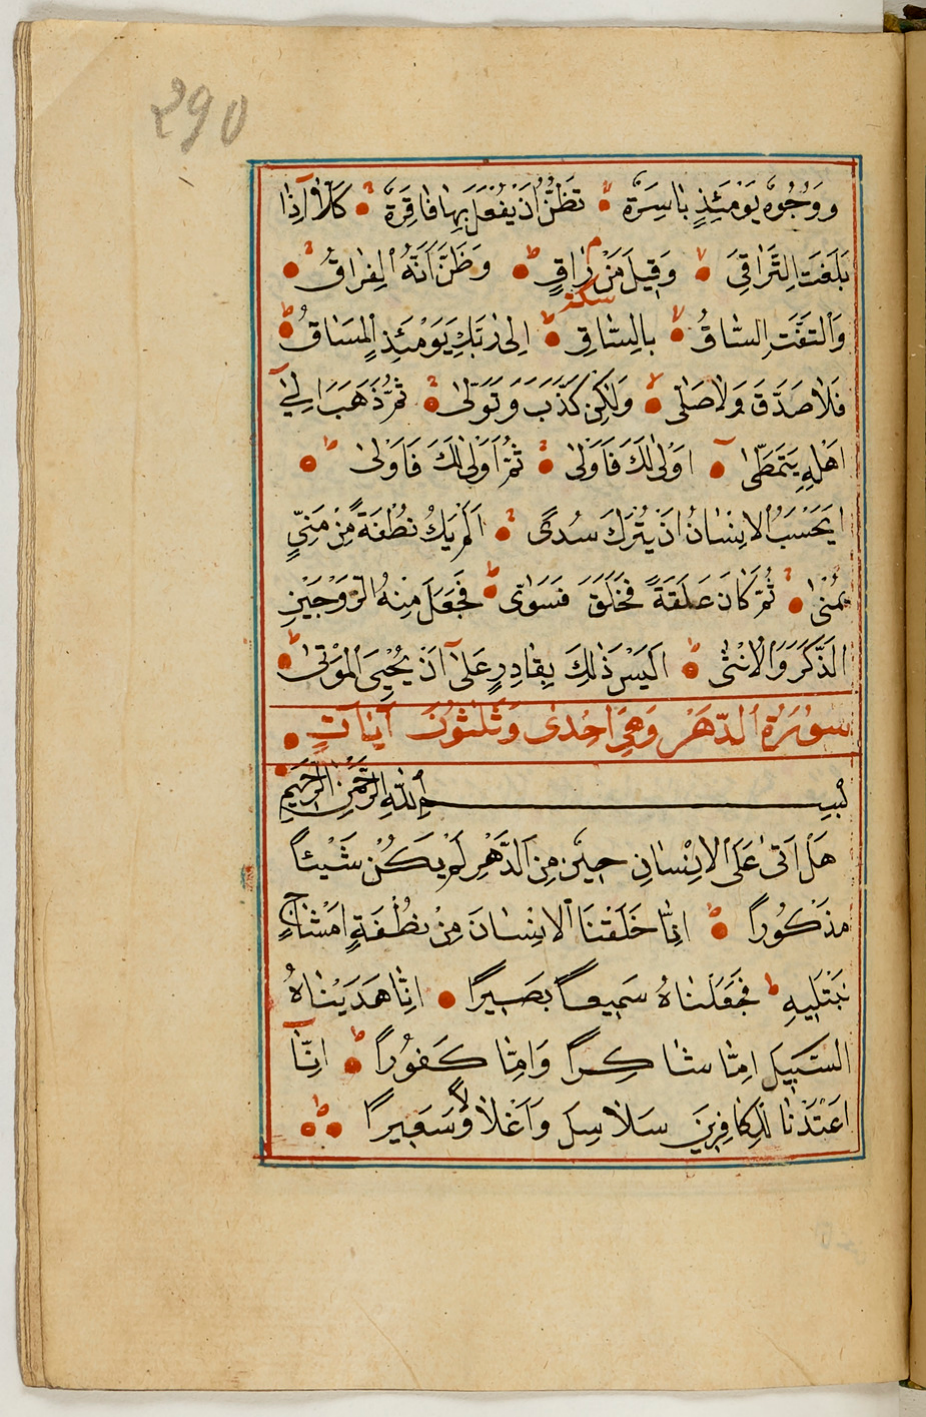 290
وَوُجُوهٌ يَوْمَئِذٍ بَاسِرَةٌ تَظُنُّ اَنْ يُفْعَلَ بِهَا فَاقِرَةٌ كَلَّا اِذَا
بَلَغَتِ التَّرَاقِيَ وَقِيلَ مَنْ رَاقٍ وَظَنَّ اَنَّهُ الْفِرَاقُ
سكته
وَالْتَفَّتِ السَّاقُ بِالسَّاقِ اِلٰى رَبِّكَ يَوْمَئِذٍ الْمَسَاقُ
فَلَا صَدَّقَ وَلَا صَلّٰى وَلٰكِنْ كَذَّبَ وَتَوَلّٰى ثُمَّ ذَهَبَ اِلٰى
اَهْلِهِ يَتَمَطّٰى اَوْلٰى لَكَ فَاَوْلٰى ثُمَّ اَوْلٰى لَكَ فَاَوْلٰى
اَيَحْسَبُ الْاِنْسَانُ اَنْ يُتْرَكَ سُدًى اَلَمْ يَكُ نُطْفَةً مِنْ مَنِيٍّ
يُمْنٰى ثُمَّ كَانَ عَلَقَةً فَخَلَقَ فَسَوّٰى فَجَعَلَ مِنْهُ الزَّوْجَيْنِ
الذَّكَرَ وَالْاُنْثٰى اَلَيْسَ ذٰلِكَ بِقَادِرٍ عَلٰى اَنْ يُحْيِيَ الْمَوْتٰى
سُورَةُ الدَّهْرِ وَهِيَ اِحْدٰى وَثَلٰثُونَ آيَاتٍ
بِسْمِ اللّٰهِ الرَّحْمٰنِ الرَّحِيمِ
هَلْ اَتٰى عَلَى الْاِنْسَانِ حِينٌ مِنَ الدَّهْرِ لَمْ يَكُنْ شَيْئًا
مَذْكُورًا اِنَّا خَلَقْنَا الْاِنْسَانَ مِنْ نُطْفَةٍ اَمْشَاجٍ
نَبْتَلِيهِ فَجَعَلْنَاهُ سَمِيعًا بَصِيرًا اِنَّا هَدَيْنَاهُ
السَّبِيلَ اِمَّا شَاكِرًا وَاِمَّا كَفُورًا اِنَّا
اَعْتَدْنَا لِلْكَافِرِينَ سَلَاسِلَ وَاَغْلَالًا وَسَعِيرًا